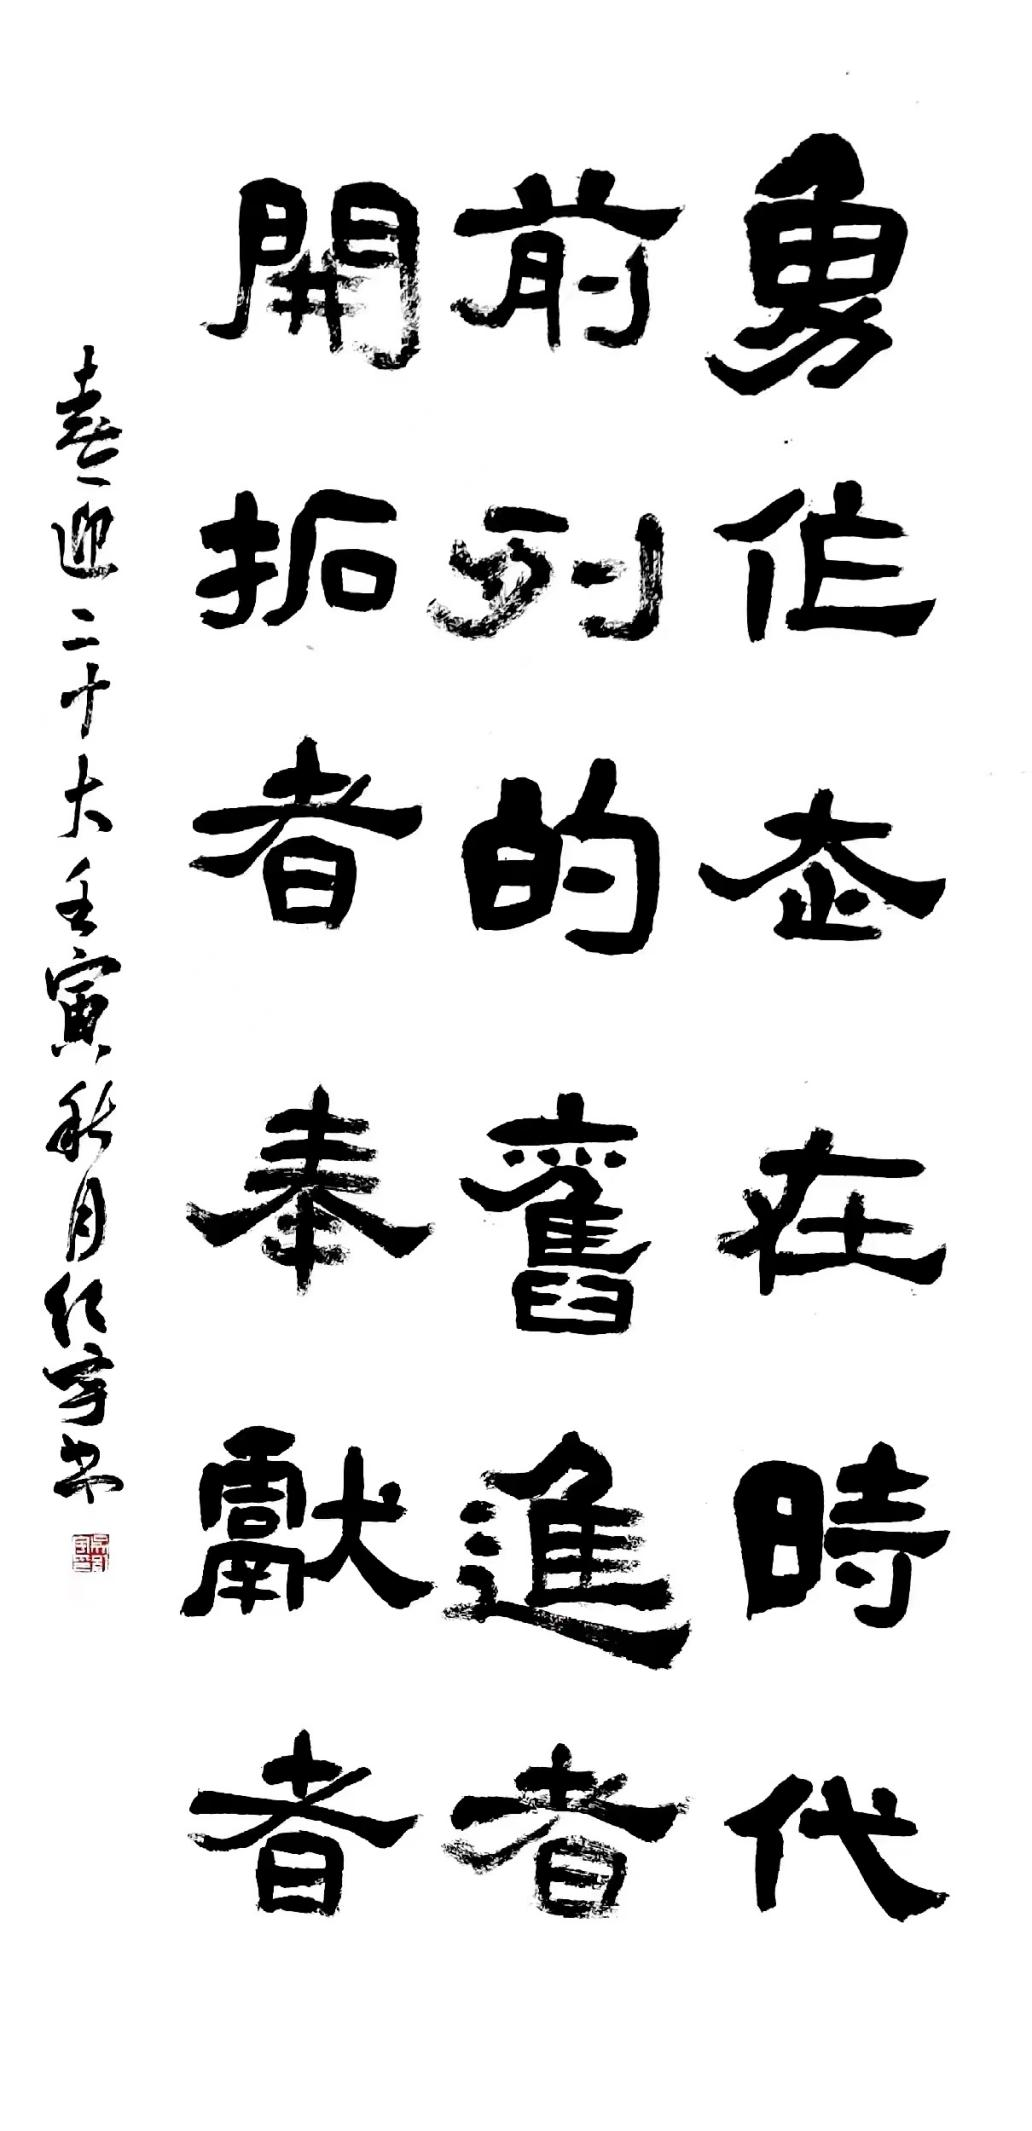 勇作走在時代
前列的奮進者
開拓者奉獻者
喜迎二十大壬寅秋月